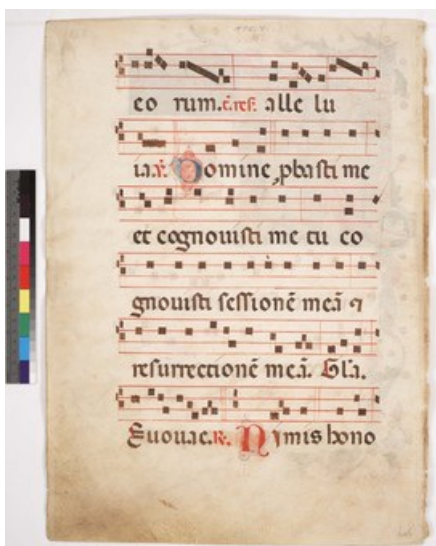 eo rum. t̃. res̃. alle lu
ia. ꝟ. Domine ꝓbasti me
et cognouisti me tu co
gnouisti sessionē meā ⁊
resurrectionē meā. Gl̃a.
Euouae. ℟. Nimis hono